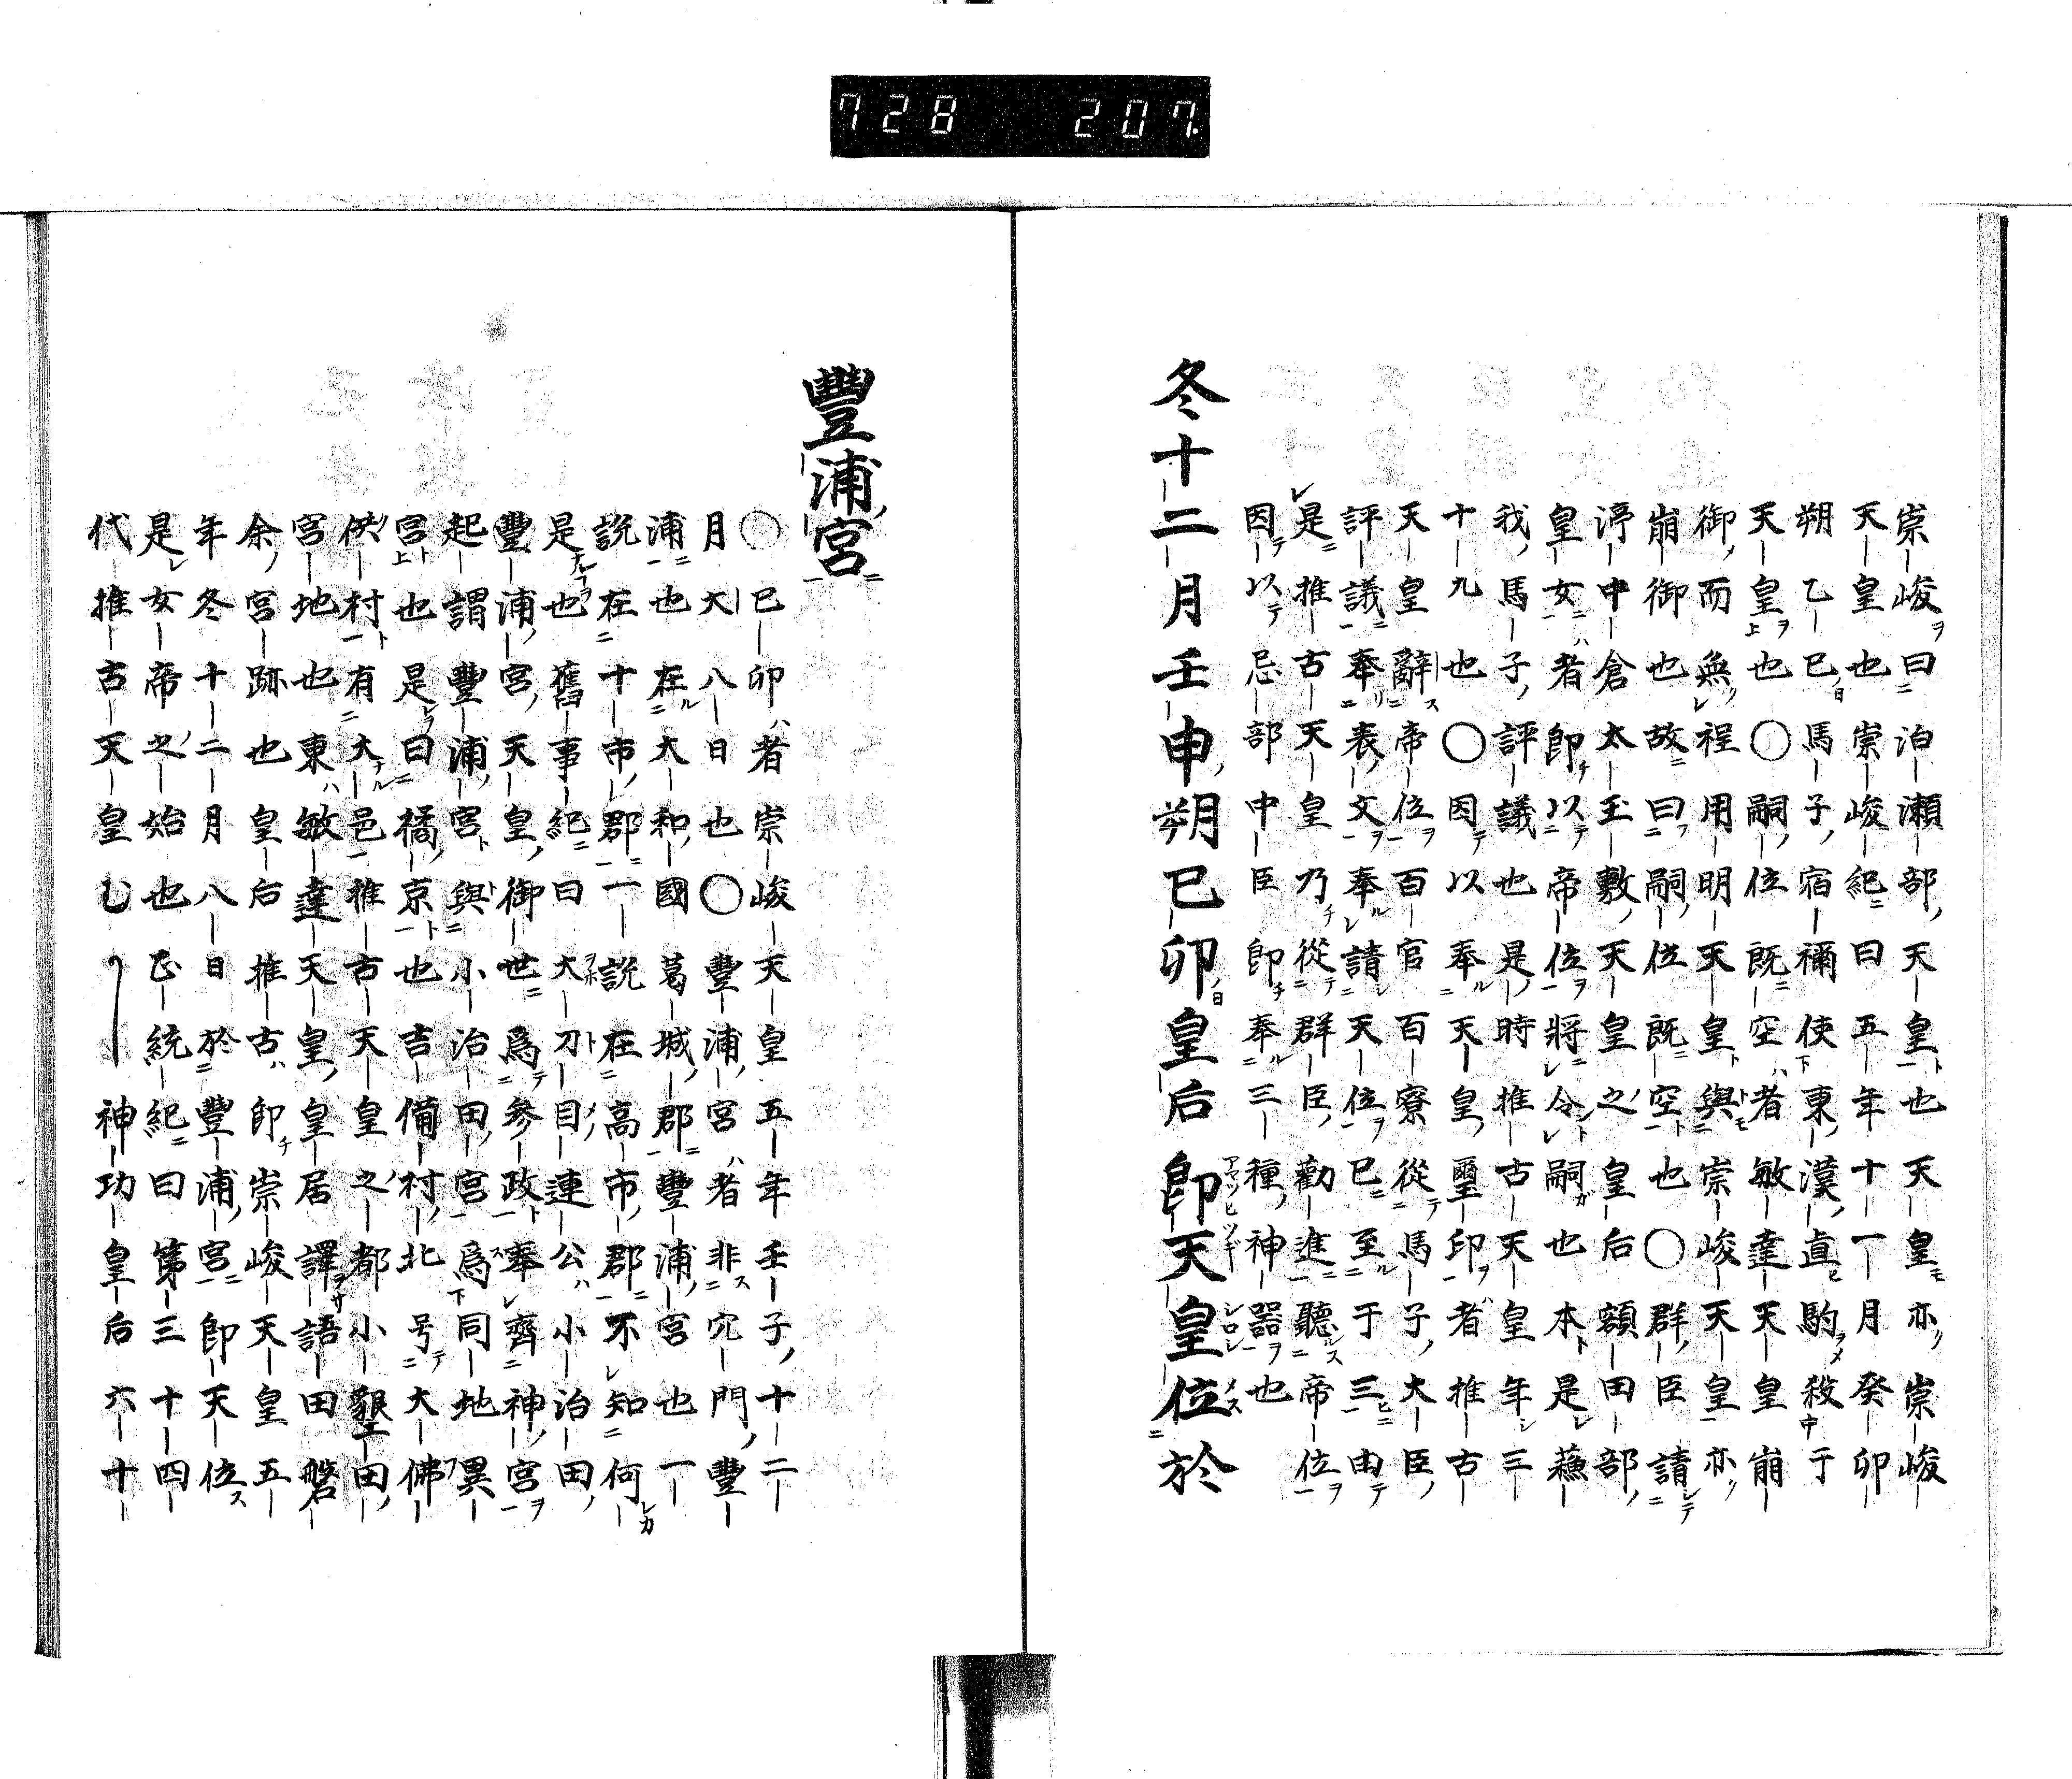 728 207
崇峻曰泊瀬部天皇也天皇亦崇峻
天皇也崇峻紀曰五年十一月癸卯
朔乙巳馬子宿禰使東漢直駒殺于
天皇也○嗣位既空者敏達天皇崩
御而無程用明天皇與崇峻天皇亦
崩御也故曰嗣位既空也○群臣請
渟中倉太玉敷天皇之皇后額田部
皇女者即以帝位將令嗣也本是蘓
我馬子評議也是時推古天皇年三
十九也○因以奉天皇璽印者推古
天皇辭帝位百官百寮從馬子大臣
評議奉表文奉請天位已至于三由
是推古天皇乃從群臣勸進聽帝位
因以忌部中臣即奉三種神器也
冬十二月壬申朔已卯皇后即天皇位於
豐浦宮
○已卯者崇峻天皇五年壬子十二
月大八日也○豐浦宮者非穴門豐
浦也在大和國葛城郡豐浦宮也一
説在十市郡一説在高市郡不知何
是也舊事紀曰大刀目連公小治田
豐浦宮天皇御世爲參政奉齊神宮
起謂豐浦宮與小治田宮爲同地異
宮也是曰橘京也吉備村北号大佛
供村有大邑推古天皇之都小墾田
宮地也東敏達天皇皇居譯語田磐
余宮跡也皇后推古即崇峻天皇五
年冬十二月八日於豐浦宮即天位
是女帝之始也正統紀曰第三十四
代推古天皇し神功皇后六十